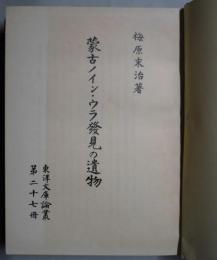 梅原末治著
蒙古ノイン・ウラ發見の遺物
東洋文庫論叢
第二十七冊